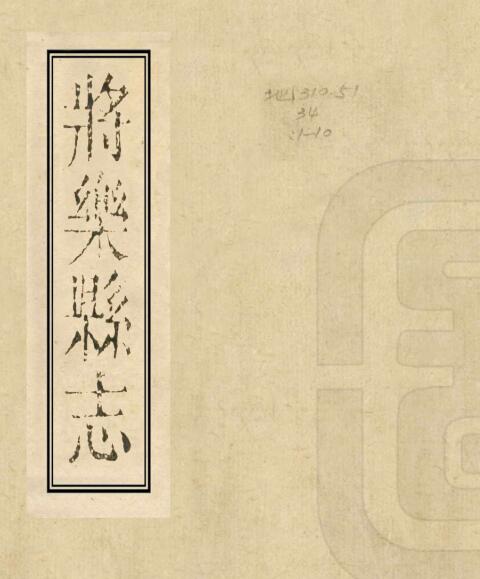 將樂縣志
地310.51
34
:1-10